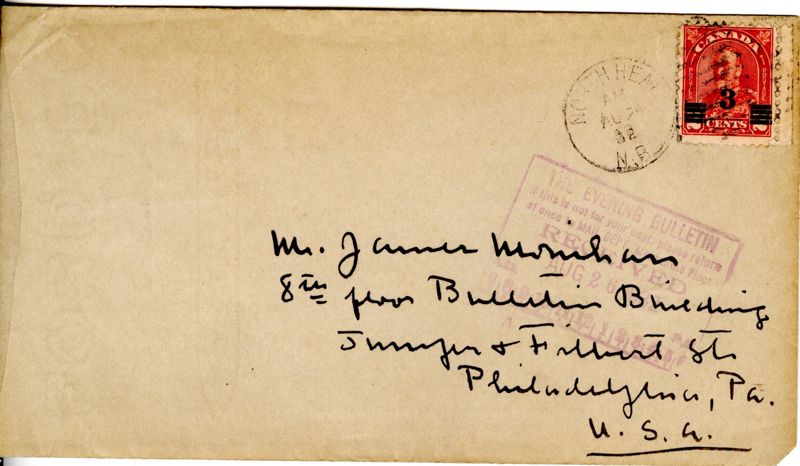 CANADA
POSTAGE POSTAGE
3
CENTS
NORTH HEAD
AM
AU 24
32
N.B.
THE EVENING BULLETIN
If this is not for your dept. please return
at once to MAIL DEPT. Floor
RECEIVED
AUG 26
Mr. James Monihan
8th floor Bulletin Building
Juniper & Filbert Sts
Philadelphia, Pa.
U. S. A.